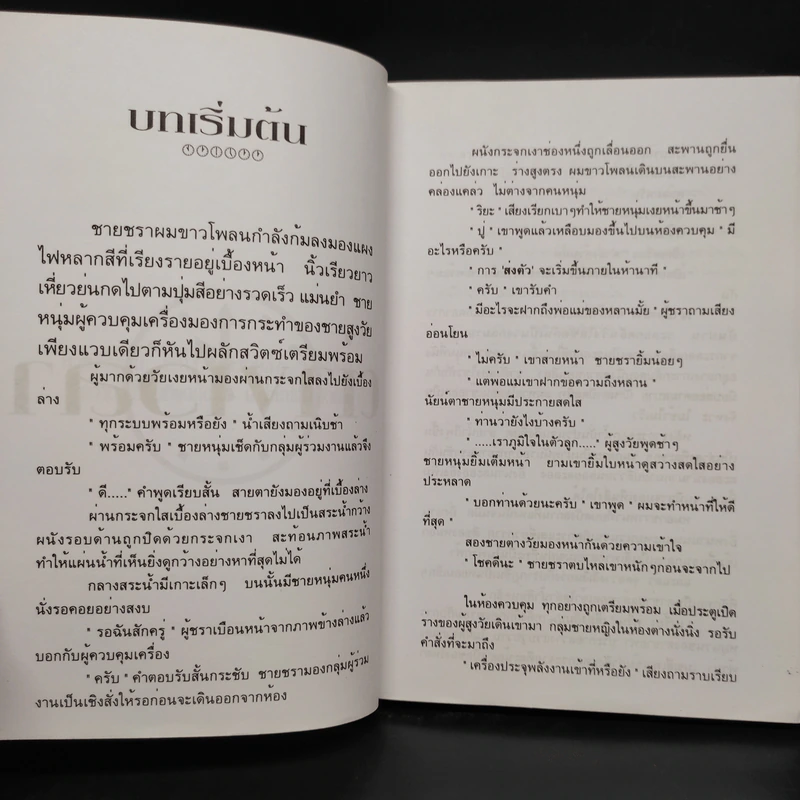 บทเริ่มต้น
ชายชราผมขาวโพลนกำลังก้มลงมองแผง
ไฟหลากสีที่เรียงรายอยู่เบื้องหน้า นิ้วเรียวยาว
เหี่ยวย่นกดไปตามปุ่มสีอย่างรวดเร็ว แม่นยำ ชาย
หนุ่มผู้ควบคุมเครื่องมองการกระทำของชายสูงวัย
เพียงแวบเดียวก็หันไปผลักสวิตซ์เตรียมพร้อม
ผู้มากด้วยวัยเงยหน้ามองผ่านกระจกใสลงไปยังเบื้อง
ล่าง
" ทุกระบบพร้อมหรือยัง " น้ำเสียงถามเนิบช้า
" พร้อมครับ " ชายหนุ่มเช็คกับกลุ่มผู้ร่วมงานแล้วจึง
ตอบรับ
" ดี....." คำพูดเรียบสั้น สายตายังมองอยู่ที่เบื้องล่าง
ผ่านกระจกใสเบื้องล่างชายชราลงไปเป็นสระน้ำกว้าง
ผนังรอบด้านถูกปิดด้วยกระจกเงา สะท้อนภาพสระน้ำ
ทำให้แผ่นน้ำที่เห็นยิ่งดูกว้างอย่างหาที่สุดไม่ได้
กลางสระน้ำมีเกาะเล็กๆ บนนั้นมีชายหนุ่มคนหนึ่ง
นั่งรอคอยอย่างสงบ
" รอฉันสักครู่ " ผู้ชราเบือนหน้าจากภาพข้างล่างแล้ว
บอกกับผู้ควบคุมเครื่อง
" ครับ " คำตอบรับสั้นกระชับ ชายชรามองกลุ่มผู้ร่วม
งานเป็นเชิงสั่งให้รอก่อนจะเดินออกจากห้อง
ผนังกระจกเงาช่องหนึ่งถูกเลื่อนออก สะพานถูกยื่น
ออกไปยังเกาะ ร่างสูงตรง ผมขาวโพลนเดินบนสะพานอย่าง
คล่องแคล่ว ไม่ต่างจากคนหนุ่ม
" ริยะ " เสียงเรียกเบาๆทำให้ชายหนุ่มเงยหน้าขึ้นมาช้าๆ
" ปู่ " เขาพูดแล้วเหลือบมองขึ้นไปบนห้องควบคุม " มี
อะไรหรือครับ "
" การ 'ส่งตัว' จะเริ่มขึ้นภายในห้านาที "
" ครับ " เขารับคำ
" มีอะไรจะฝากถึงพ่อแม่ของหลานมั้ย " ผู้ชราถามเสียง
อ่อนโยน
" ไม่ครับ " เขาส่ายหน้า ชายชรายิ้มน้อยๆ
" แต่พ่อแม่เขาฝากข้อความถึงหลาน "
นัยน์ตาชายหนุ่มมีประกายสดใส
" ท่านว่ายังไงบ้างครับ "
" .....เราภูมิใจในตัวลูก....." ผู้สูงวัยพูดช้าๆ
ชายหนุ่มยิ้มเต็มหน้า ยามเขายิ้มใบหน้าดูสว่างสดใสอย่าง
ประหลาด
" บอกท่านด้วยนะครับ " เขาพูด " ผมจะทำหน้าที่ให้ดี
ที่สุด "
สองชายต่างวัยมองหน้ากันด้วยความเข้าใจ
" โชคดีนะ " ชายชราตบไหล่เขาหนักๆก่อนจะจากไป
ในห้องควบคุม ทุกอย่างถูกเตรียมพร้อม เมื่อประตูเปิด
ร่างของผู้สูงวัยเดินเข้ามา กลุ่มชายหญิงในห้องต่างนั่งนิ่ง รอรับ
คำสั่งที่จะมาถึง
" เครื่องประจุพลังงานเข้าที่หรือยัง " เสียงถามราบเรียบ